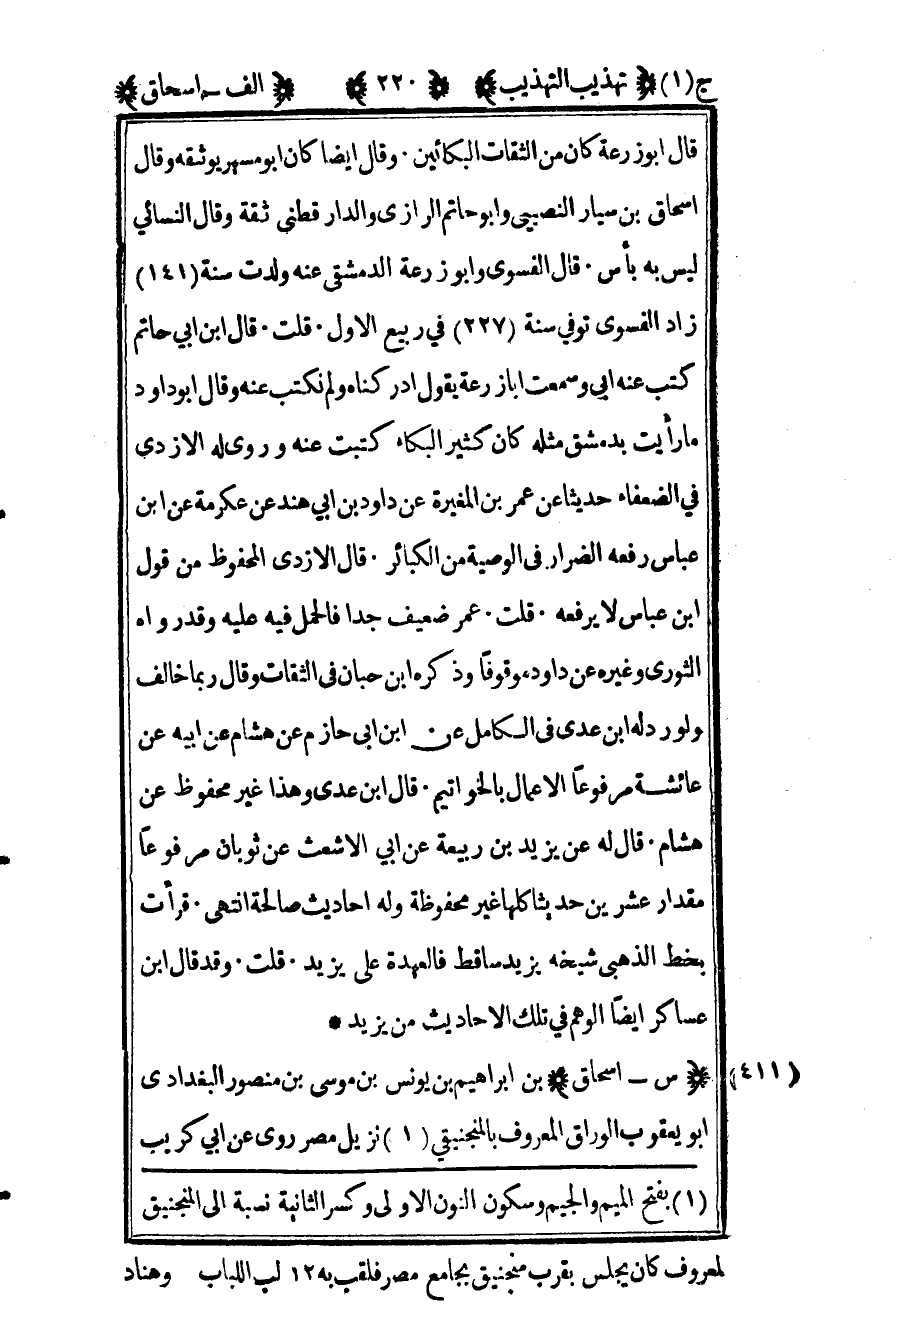 ج(١) ﴿تهذيب التهذيب﴾ ﴿٢٢٠﴾ ﴿الف ـ اسحاق﴾
قال ابوزرعة كان من الثقات البكائين · وقال ايضا كان ابو مسهر يوثقه وقال
اسحاق بن سيار النصيبي وابو حاتم الرازى والدار قطني ثقة وقال النسائي
ليس به بأس · قال الفسوى وابو زرعة الدمشقى عنه ولدت سنة (١٤١)
زاد الفسوى توفي سنة (٢٢٧) في ربيع الاول · قلت · قال ابن ابي حاتم
كتب عنه ابي وسمعت ابا زرعة يقول ادركناه ولم نكتب عنه وقال ابوداود
مارأيت بدمشق مثله كان كثير البكاء كتبت عنه وروى له الازدى
في الضعفاء حديثا عن عمر بن المغيرة عن داود بن ابي هند عن عكرمة عن ابن
عباس رفعه الضرار فى الوصية من الكبائر · قال الازدى المحفوظ من قول
ابن عباس لا يرفعه · قلت · عمر ضعيف جدا فالحمل فيه عليه وقد رواه
الثورى وغيره عن داود موقوفاً وذكره ابن حبان فى الثقات وقال ربما خالف
ولورد له ابن عدى فى الكامل عن ابن ابى حازم عن هشام عن ابيه عن
عائشة مرفوعاً الاعمال بالخواتيم · قال ابن عدى وهذا غير محفوظ عن
هشام · قال له عن يزيد بن ربيعة عن ابي الاشعث عن ثوبان مرفوعاً
مقدار عشرين حديثا كلها غير محفوظة وله احاديث صالحة انتهى · قرأت
بخط الذهبى شيخه يزيد ساقط فالعهدة على يزيد · قلت · وقد قال ابن
عساكر ايضاً الوهم في تلك الاحاديث من يزيد *
(٤١١) ﴿س ـ اسحاق﴾ بن ابراهيم بن يونس بن موسى بن منصور البغدادى
ابو يعقوب الوراق المعروف بالمنجنيقي (١) نزيل مصر روى عن ابي كريب
(١) بفتح الميم والجيم وسكون النون الاولى وكسر الثانية نسبة الى المنجنيق
لمعروف كان يجلس بقرب منجنيق بجامع مصر فلقب به ١٢ لب اللباب وهناد